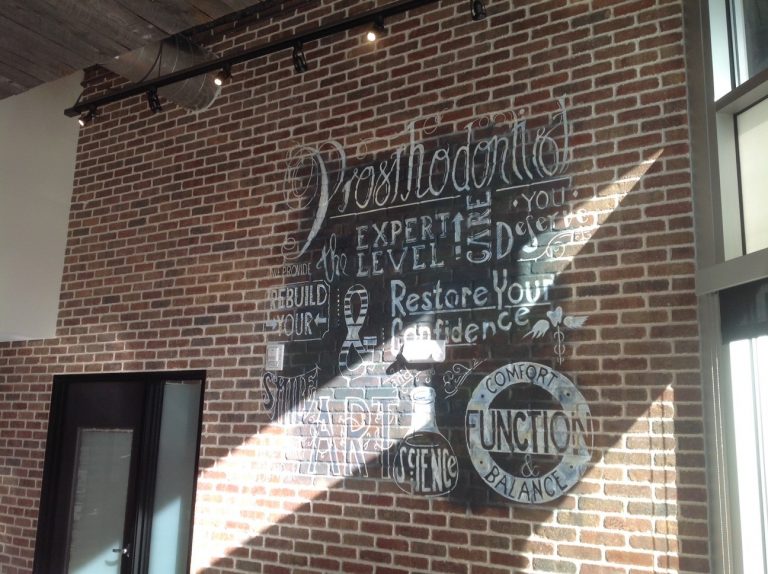 Prosthodontist
WE PROVIDE the EXPERT LEVEL CARE YOU Deserve
REBUILD YOUR SMILE & Restore Your Confidence
ART
SCIENCE
COMFORT
FUNCTION
& BALANCE